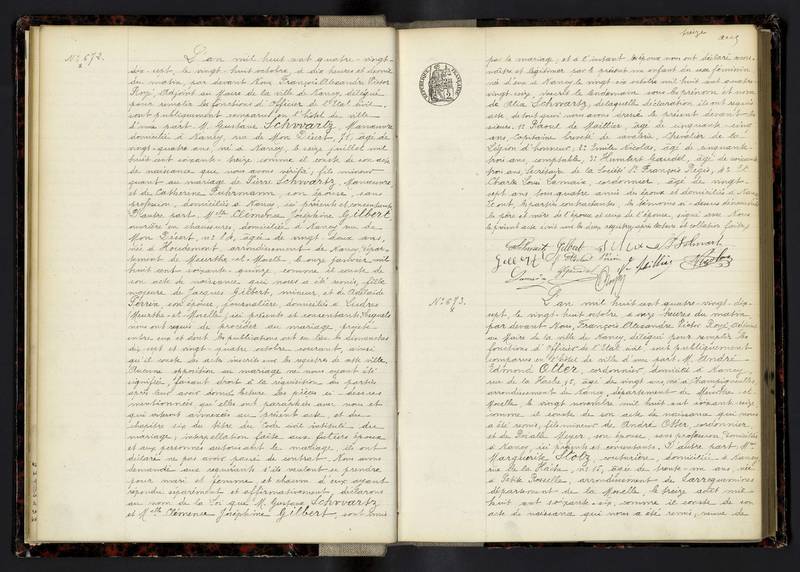 N° 672.
L'an mil huit cent quatre-vingt-
dix-sept, le vingt-huit octobre, à dix heures et demie
du matin, par devant Nous François Alexandre Victor
Royé, Adjoint au Maire de la ville de Nancy, délégué
pour remplir les fonctions d'Officier de l'Etat civil
sont publiquement comparus en l'hôtel de ville
d'une part M. Gustave Schwartz, Manœuvre
domicilié à Nancy, rue de Mon Désert, âgé de
vingt-quatre ans, né à Nancy, le seize juillet mil
huit cent soixante-treize comme il conste de son acte
de naissance que nous avons vérifié, fils mineur
quant au mariage de Pierre Schwartz, Manœuvre
et de Catherine Fuhrmann, son épouse, sans
profession, domiciliés à Nancy, ici présents et consentants
D'autre part, Mlle Clémence Joséphine Gilbert
ouvrière en chaussures, domiciliée à Nancy rue de
Mon Désert, âgée de vingt deux ans,
née à Houdemont arrondissement de Nancy, dépar-
tement de Meurthe-et-Moselle, le onze janvier mil
huit cent soixante-quinze, comme il conste de
son acte de naissance, qui nous a été remis, fille
majeure de Jacques Gilbert, mineur, et de Adélaïde
Perrin son épouse, journalière, domiciliés à Ludres
(Meurthe et Moselle) ici présents et consentants. Lesquels
nous ont requis de procéder au mariage projeté
entre eux et dont les publications ont eu lieu les dimanches
dix-sept et vingt-quatre octobre courant, ainsi
qu'il conste des actes inscrits sur les registres de cette ville.
Aucune opposition au mariage ne nous ayant été
signifiée, faisant droit à la réquisition des parties
après leur avoir donné lecture des pièces ci-dessus
mentionnées qu'elles ont paraphées avec nous et
qui seront annexées au présent acte, et du
chapitre six du titre du Code civil intitulé du
mariage; interpellation faite aux futurs époux
et aux personnes autorisant le mariage, ils ont
déclaré ne pas avoir passé de contrat. Nous avons
demandé aux requérants s'ils veulent se prendre
pour mari et femme, et chacun d'eux ayant
répondu séparément et affirmativement, déclarons
au nom de la Loi que M. Gustave Schwartz
et Mlle Clémence Joséphine Gilbert, sont unis
par le mariage, et à l'instant les époux nous ont déclaré recon-
naître et légitimer par le présent un enfant du sexe féminin
né d'eux à Nancy le vingt six octobre mil huit cent quatre-
vingt-seize, inscrit le lendemain sous le prénom et nom
de Schwartz, desquelles déclarations ils ont requis
acte, de tout quoi nous avons dressé le présent devant
ans, Capitaine breveté de cavalerie, Chevalier de la
Légion d'honneur, 2° Emile Nicolas, âgé de cinquante
trois ans, comptable, 3° Humbert Gaudel, âgé de soixante
trois ans, Secrétaire de la Société St François Régis, et 4°
Charles Louis cordonnier, âgé de vingt-
sept ans, tous quatre amis des époux et domiciliés à Nancy
Et ont, les parties contractantes, les témoins ci-dessus dénommés
le père et mère de l'époux et ceux de l'épouse, signé avec Nous
le présent acte écrit sur les deux registres, après lecture et collation faites.
Schwartz Gilbert
N° 673.
L'an mil huit cent quatre-vingt-dix-
sept, le vingt-huit octobre, à onze heures du matin,
par devant Nous, François Alexandre Victor Royé, Adjoint
au Maire de la ville de Nancy, délégué pour remplir les
fonctions d'Officier de l'Etat civil sont publiquement
comparus en l'hôtel de ville d'une part M. André
Edmond Otter, cordonnier domicilié à Nancy,
rue de la Hache, 15, âgé de vingt ans, né à Champigneulles,
arrondissement de Nancy, département de Meurthe-et-
Moselle, le vingt novembre mil huit cent soixante-seize
comme il conste de son acte de naissance qui nous
a été remis, fils mineur de André Otter, cordonnier
et de Rosalie Meyer, son épouse, sans profession, domiciliés
à Nancy, ici présents et consentants. D'autre part, Mlle
Marguerite Stolz, couturière, domiciliée à Nancy,
rue de la Hache, n° 15, âgée de trente-un ans, née
à Petite Rosselle, arrondissement de Sarreguemines
département de la Moselle, le treize août mil
huit cent soixante-six, comme il conste de son
acte de naissance qui nous a été remis, veuve de